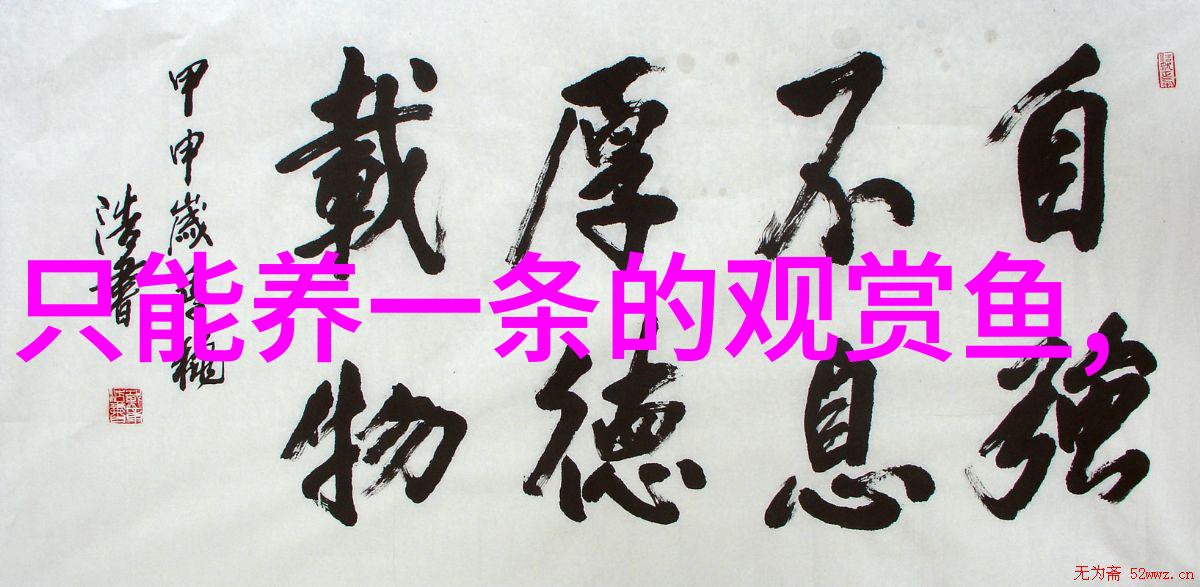 自强
不息
厚德
載物
甲申歲
浩書
只能养一条的观赏鱼,
无为斋 52wwz.cn